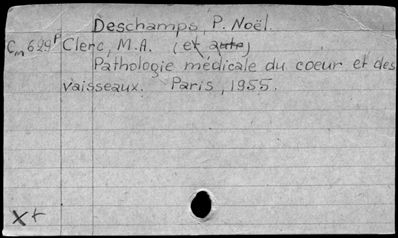 Deschamps, P. Noël.
Cm629P Clerc, M.A. (et autre)
Pathologie médicale du coeur et des
vaisseaux. Paris, 1955.
X+